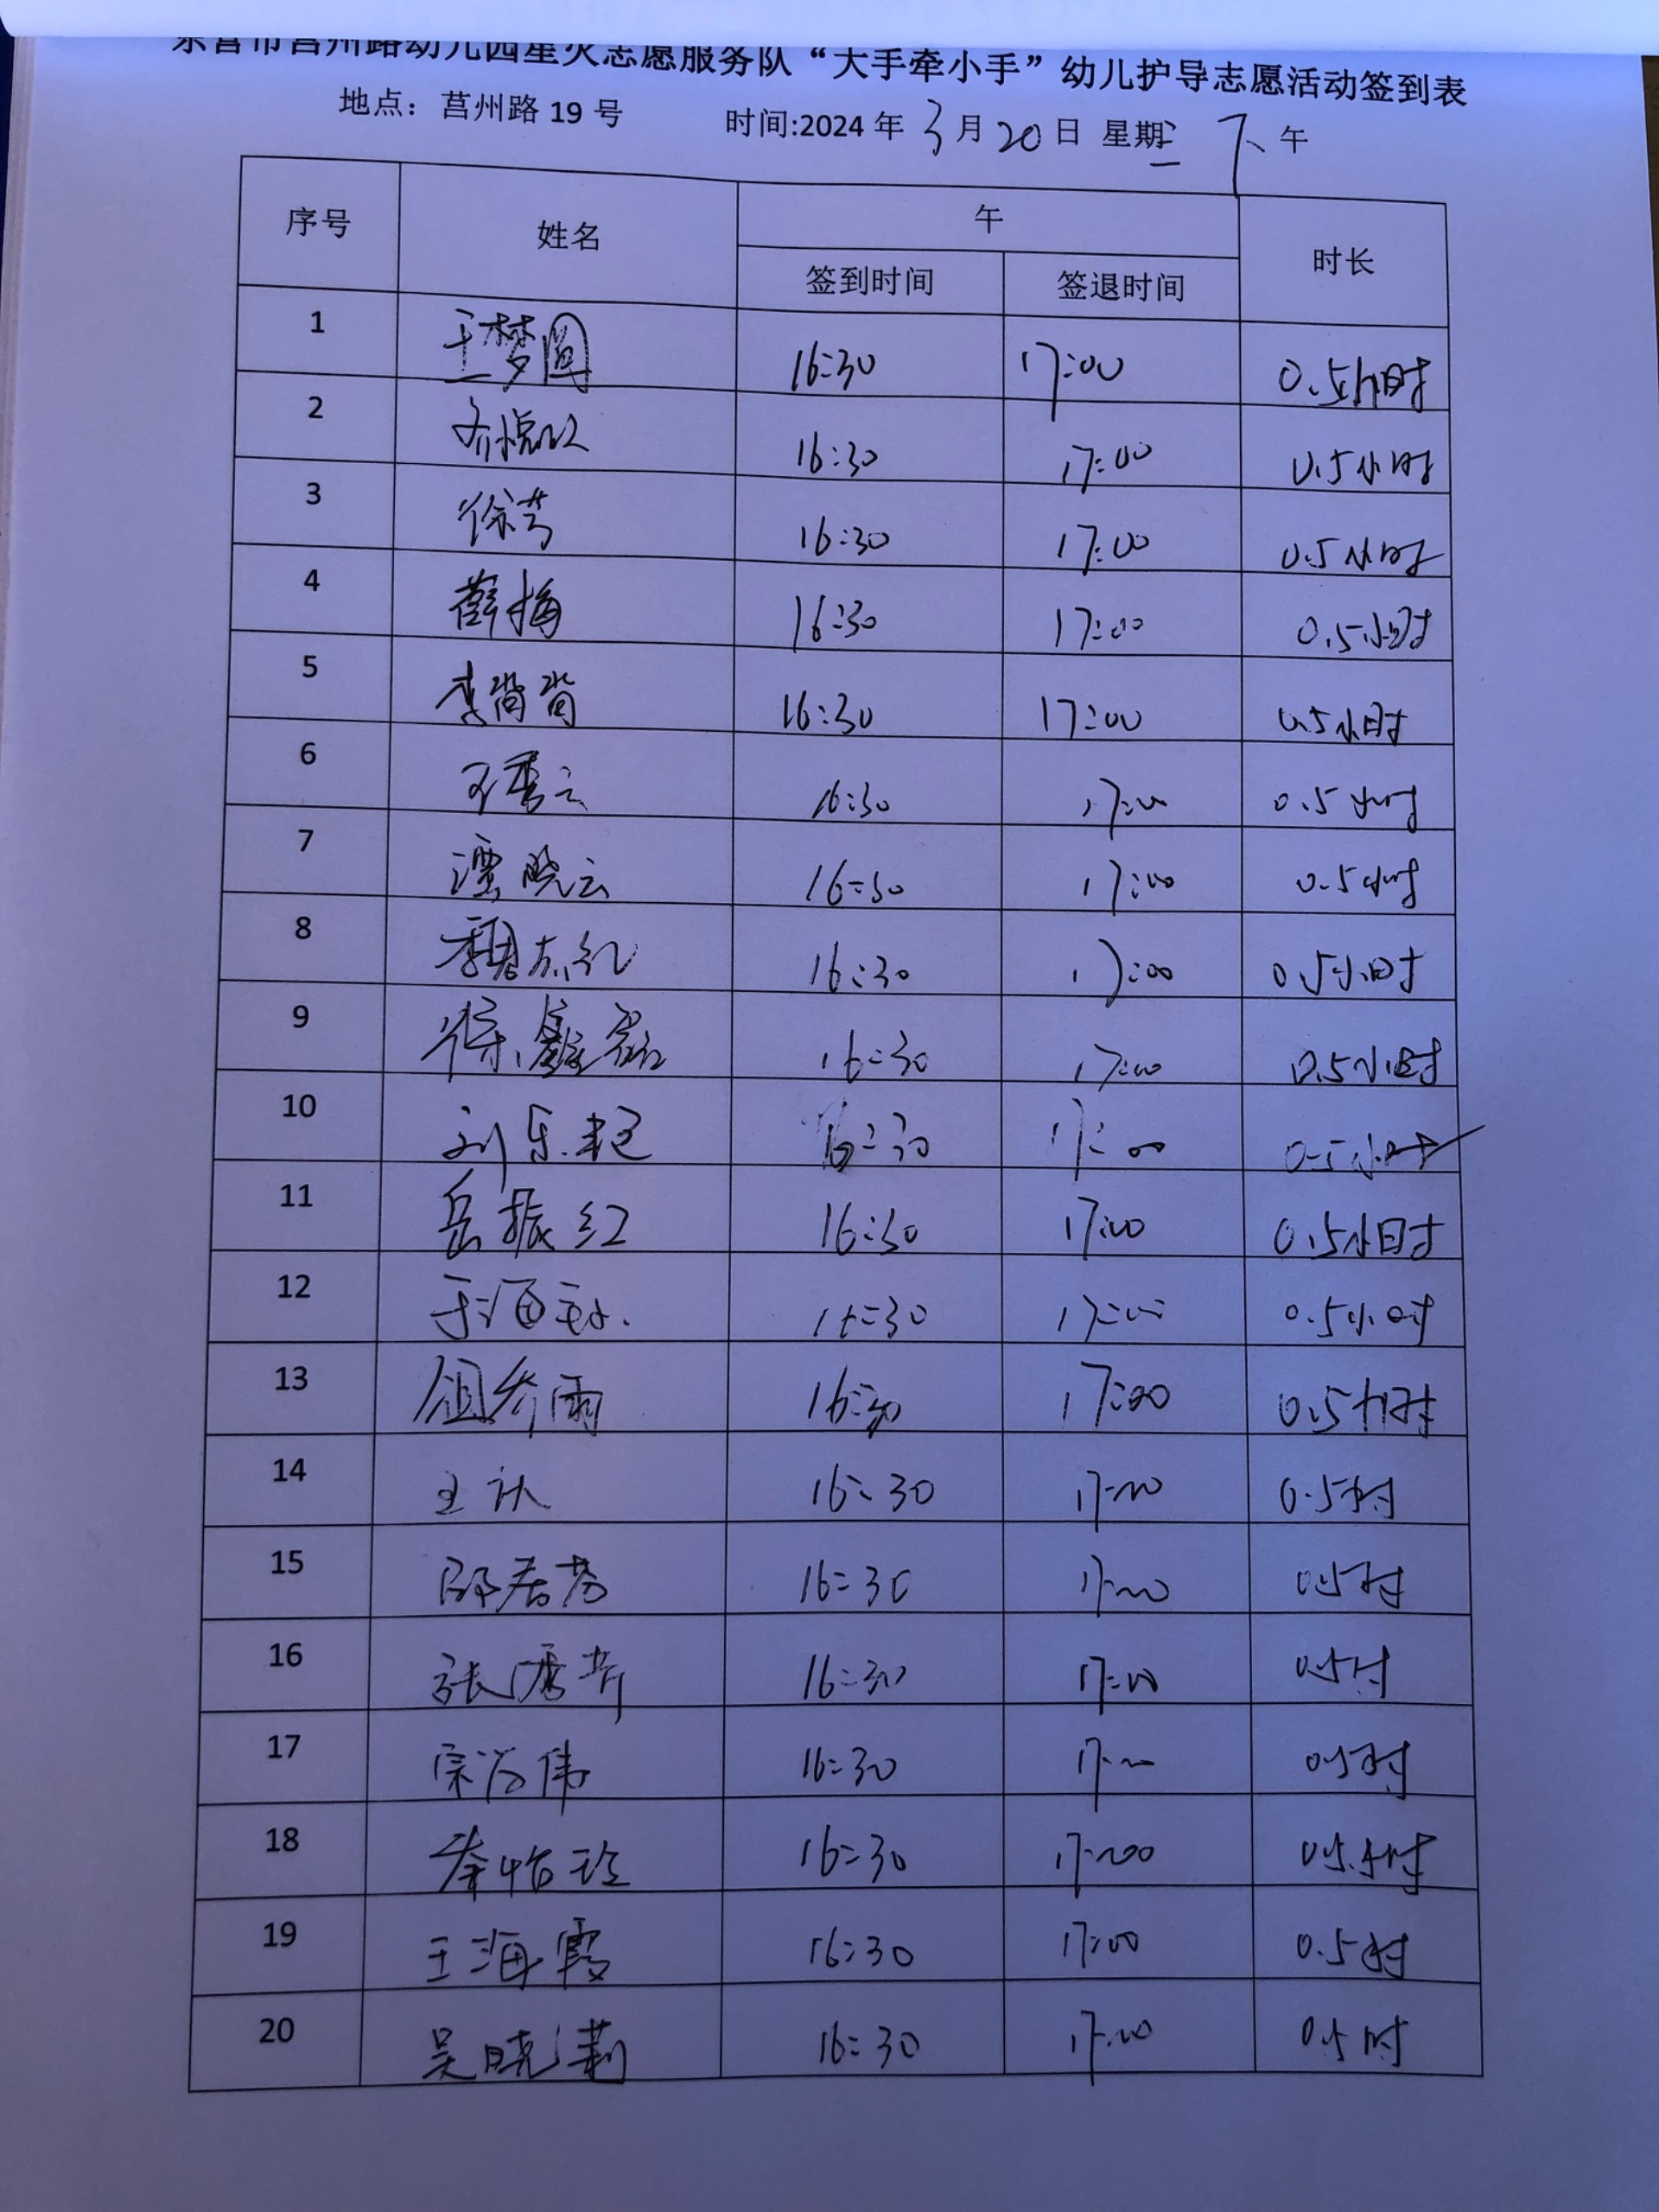 东营市莒州路幼儿园星火志愿服务队“大手牵小手”幼儿护导志愿活动签到表
地点：莒州路 19 号 时间:2024 年 3 月 20 日 星期三 下 午
序号 姓名 午 时长
签到时间 签退时间
1 王梦圆 16:30 17:00 0.5小时
2 16:30 17:00 0.5小时
3 徐芳 16:30 17:00 0.5小时
4 薛梅 16:30 17:00 0.5小时
5 李茜茜 16:30 17:00 0.5小时
6 王秀云 16:30 17:00 0.5小时
7 谭晓云 16:30 17:00 0.5小时
8 魏志红 16:30 17:00 0.5小时
9 徐鑫磊 16:30 17:00 0.5小时
10 刘乐艳 16:30 17:00 0.5小时
11 岳振红 16:30 17:00 0.5小时
12 16:30 17:00 0.5小时
13 16:30 17:00 0.5小时
14 16:30 17:00 0.5时
15 邵居芳 16:30 17:00 0.5时
16 16:30 17:00 0.5时
17 16:30 17:00 0.5时
18 秦怡玲 16:30 17:00 0.5小时
19 王海霞 16:30 17:00 0.5时
20 吴晓莉 16:30 17:00 0.5时